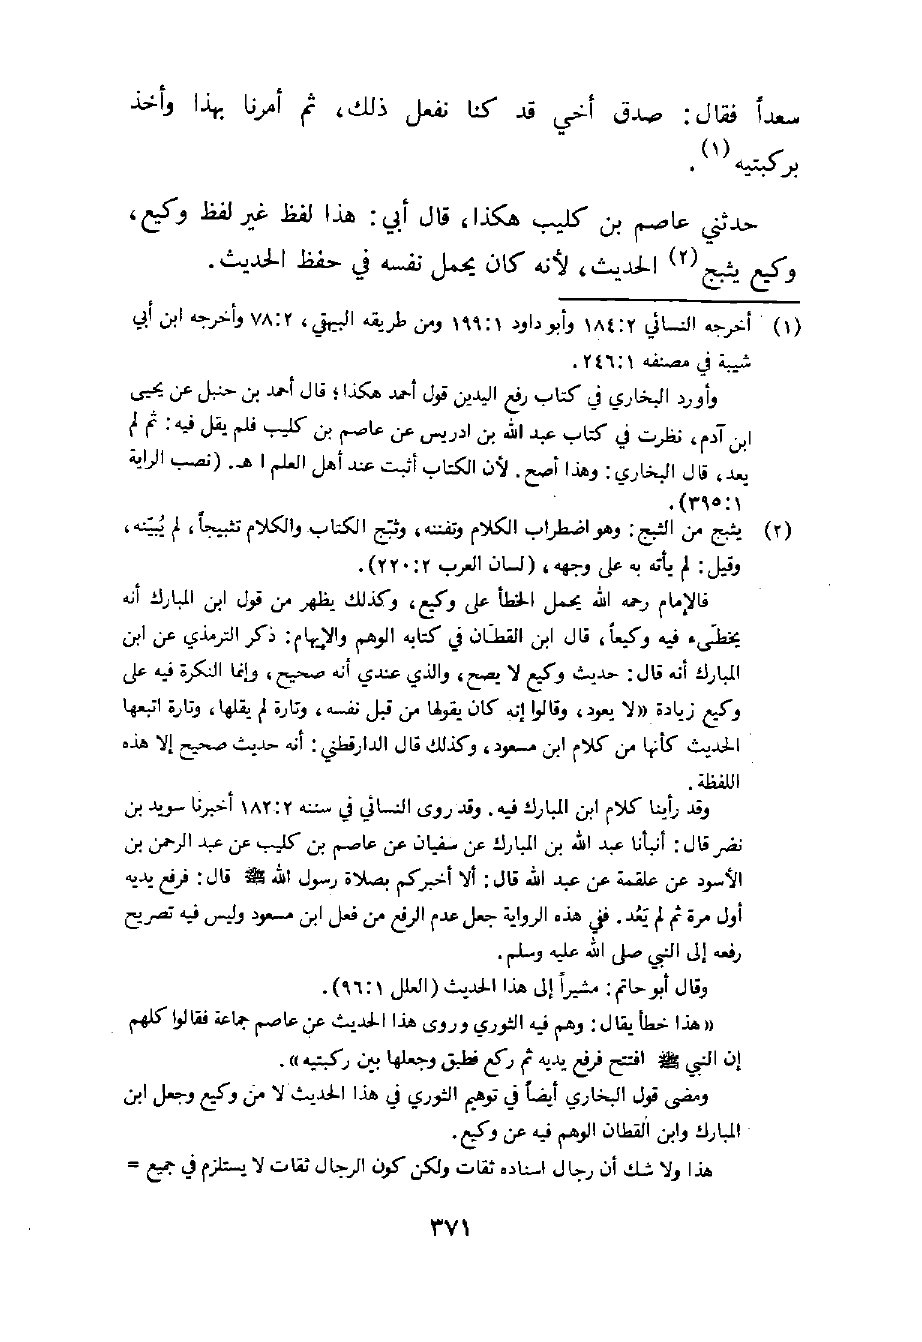 سعداً فقال: صدق أخي قد كنا نفعل ذلك، ثم أمرنا بهذا وأخذ
بركبتيه(١).
حدثني عاصم بن كليب هكذا، قال أبي: هذا لفظ غير لفظ وكيع،
وكيع يثبج(٢) الحديث، لأنه كان يحمل نفسه في حفظ الحديث.
(١) أخرجه النسائي ١٨٤:٢ وأبو داود ١٩٩:١ ومن طريقه البيهقي، ٧٨:٢ وأخرجه ابن أبي
شيبة في مصنفه ٢٤٦:١.
وأورد البخاري في كتاب رفع اليدين قول أحمد هكذا؛ قال أحمد بن حنبل عن يحيى
ابن آدم، نظرت في كتاب عبد الله بن ادريس عن عاصم بن كليب فلم يقل فيه: ثم لم
يعد، قال البخاري: وهذا أصح. لأن الكتاب أثبت عند أهل العلم ا هـ. (نصب الراية
٣٩٥:١).
(٢) يثبج من الثبج: وهو اضطراب الكلام وتفننه، وثبّج الكتاب والكلام تثبيجاً، لم يُبيّنه،
وقيل: لم يأته به على وجهه، (لسان العرب ٢٢٠:٢).
فالإمام رحمه الله يحمل الخطأ على وكيع، وكذلك يظهر من قول ابن المبارك أنه
يخطّىء فيه وكيعاً، قال ابن القطّان في كتابه الوهم والإيهام: ذكر الترمذي عن ابن
المبارك أنه قال: حديث وكيع لا يصح، والذي عندي أنه صحيح، وإنما النكرة فيه على
وكيع زيادة «لا يعود، وقالوا إنه كان يقولها من قبل نفسه، وتارة لم يقلها، وتارة اتبعها
الحديث كأنها من كلام ابن مسعود، وكذلك قال الدارقطني: أنه حديث صحيح إلا هذه
اللفظة.
وقد رأينا كلام ابن المبارك فيه. وقد روى النسائي في سننه ١٨٢:٢ أخبرنا سويد بن
نضر قال: أنبأنا عبد الله بن المبارك عن سفيان عن عاصم بن كليب عن عبد الرحمن بن
الأسود عن علقمة عن عبد الله قال: ألا أخبركم بصلاة رسول الله ﷺ قال: فرفع يديه
أول مرة ثم لم يَعُد. ففي هذه الرواية جعل عدم الرفع من فعل ابن مسعود وليس فيه تصريح
رفعه إلى النبي صلى الله عليه وسلم.
وقال أبو حاتم: مشيراً إلى هذا الحديث (العلل ٩٦:١).
«هذا خطأ يقال: وهم فيه الثوري وروى هذا الحديث عن عاصم جماعة فقالوا كلهم
إن النبي ﷺ افتتح فرفع يديه ثم ركع فطبق وجعلها بين ركبتيه».
ومضى قول البخاري أيضاً في توهيم الثوري في هذا الحديث لا من وكيع وجعل ابن
المبارك وابن القطان الوهم فيه عن وكيع.
هذا ولا شك أن رجال اسناده ثقات ولكن كون الرجال ثقات لا يستلزم في جميع =
٣٧١